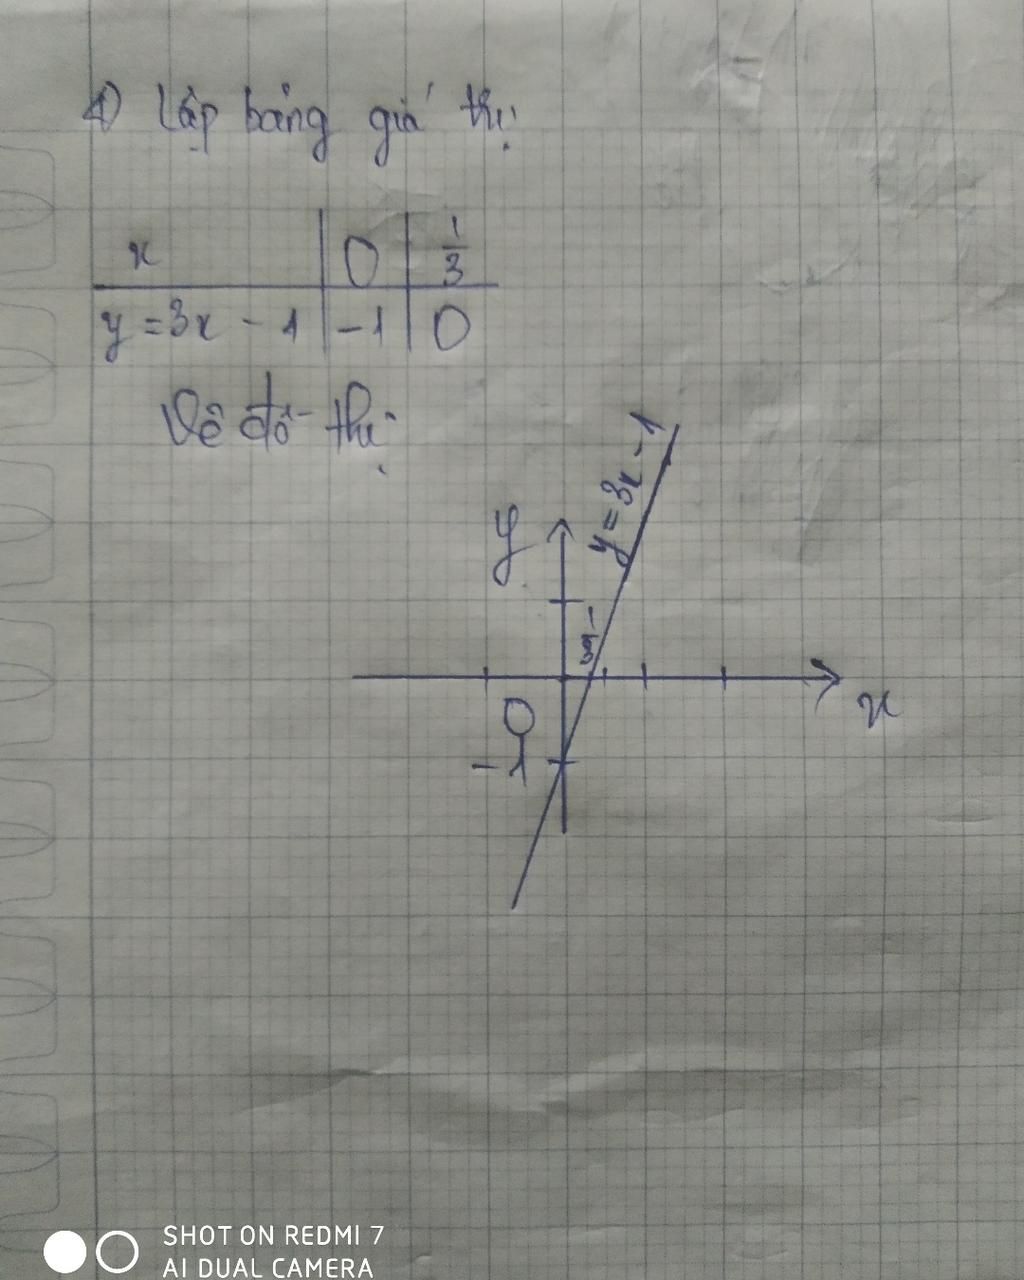 1) Lập bảng giá thị
x 0 1/3
y = 3x - 1 -1 0
Vẽ đồ thị
y = 3x - 1
y
1/3
x
O
-1
SHOT ON REDMI 7
AI DUAL CAMERA